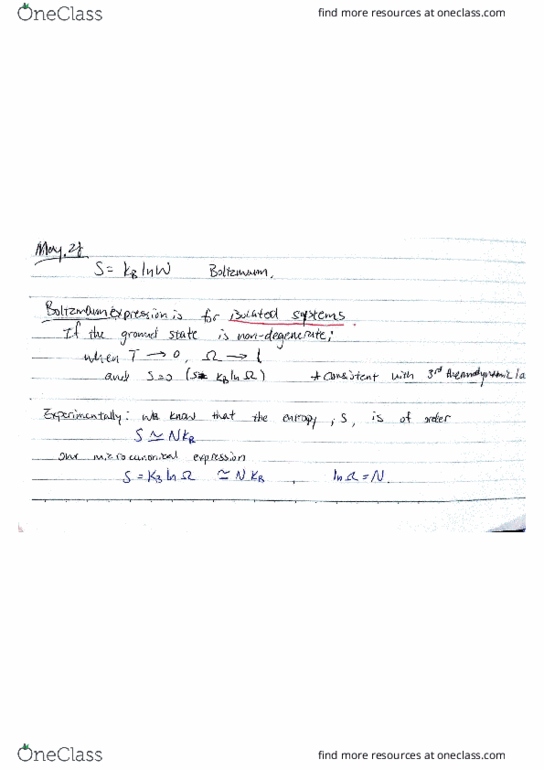 OneClass
find more resources at oneclass.com
May. 28
S = k_B ln W Boltzmann.
Boltzmann expression is for isolated systems.
If the ground state is non-degenerate;
when T → 0, Ω → 1
and S=0 (S= k_B ln Ω) * consistent with 3rd thermodynamic la
Experimentally: we know that the entropy, S, is of order
S ≃ Nk_B
our microcanonical expression
S = k_B ln Ω ≃ N k_B , ln Ω = N.
OneClass
find more resources at oneclass.com